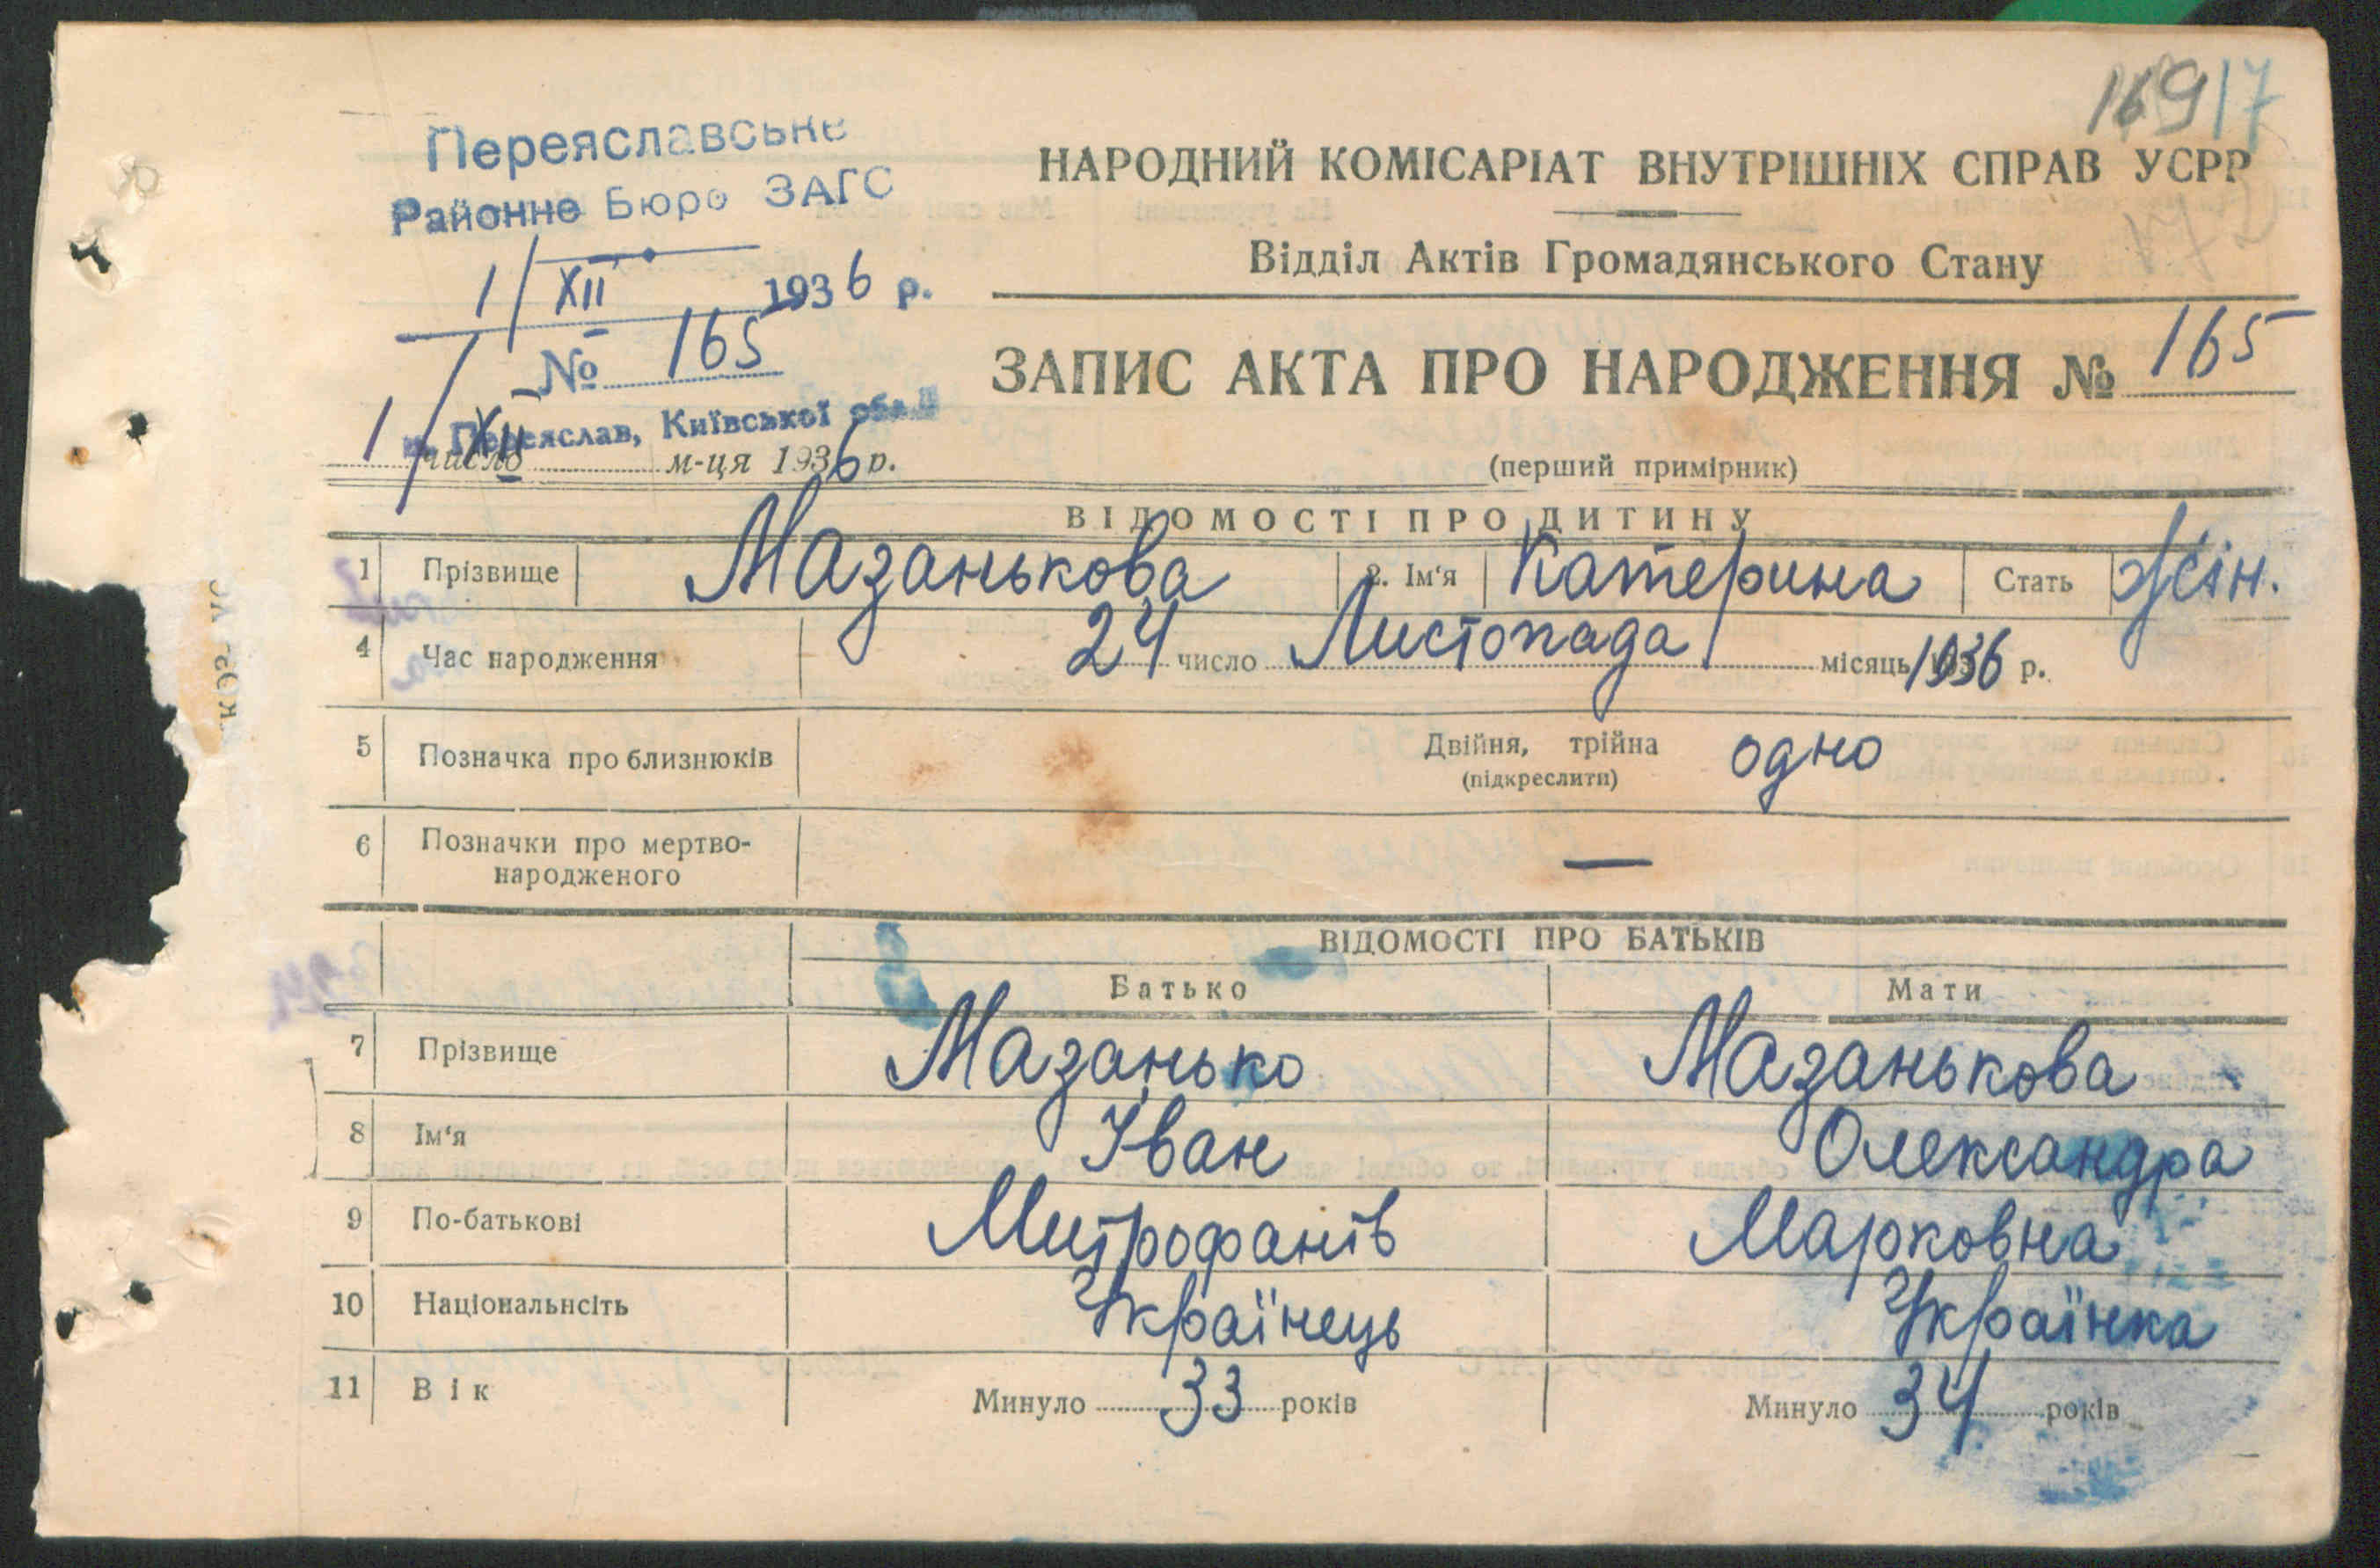 169 17
Переяславське
Районне Бюро ЗАГС
1/XII 1936 р.
№ 165
м. Переяслав, Київської обл.
1/XII число м-ця 1936 р.
НАРОДНИЙ КОМІСАРІАТ ВНУТРІШНІХ СПРАВ УСРР
Відділ Актів Громадянського Стану
ЗАПИС АКТА ПРО НАРОДЖЕННЯ № 165
(перший примірник)
ВІДОМОСТІ ПРО ДИТИНУ
1 Прізвище Мазанькова 2. Ім'я Катерина Стать Жін.
4 Час народження 24 число Листопада місяць 1936 р.
5 Позначка про близнюків Двійня, трійна одно
(підкреслити)
6 Позначки про мертво-
народженого —
ВІДОМОСТІ ПРО БАТЬКІВ
Батько Мати
7 Прізвище Мазанько Мазанькова
8 Ім'я Іван Олександра
9 По-батькові Митрофанів Марковна
10 Національнсіть Українець Українка
11 Вік Минуло 33 років Минуло 34 років